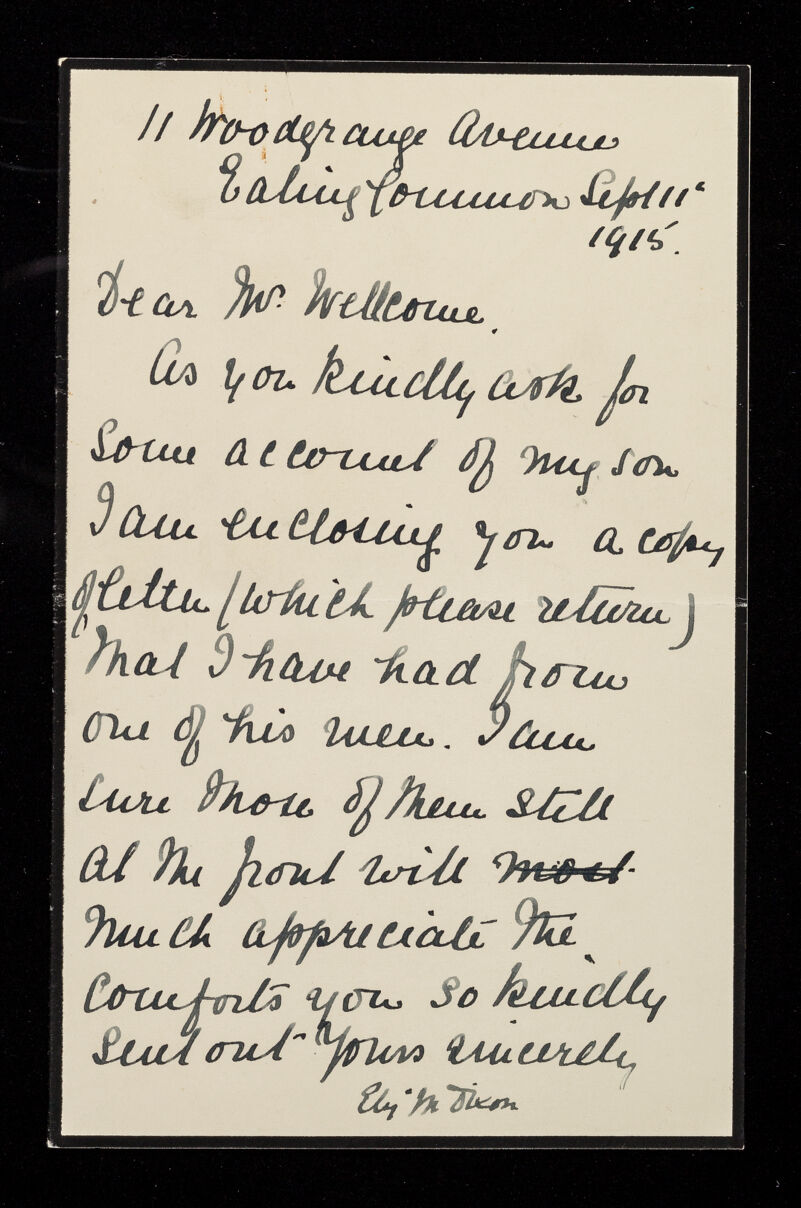 11 Woodgrange Avenue
Ealing Common Sept 11th
1915.
Dear Mr. Wellcome.
As you kindly ask for
some account of my son
I am enclosing you a copy
of letter (which please return)
that I have had from
one of his men. I am
sure those of them still
at the front will most
much appreciate the
comforts you so kindly
sent out Yours sincerely
Eliz M Dixon